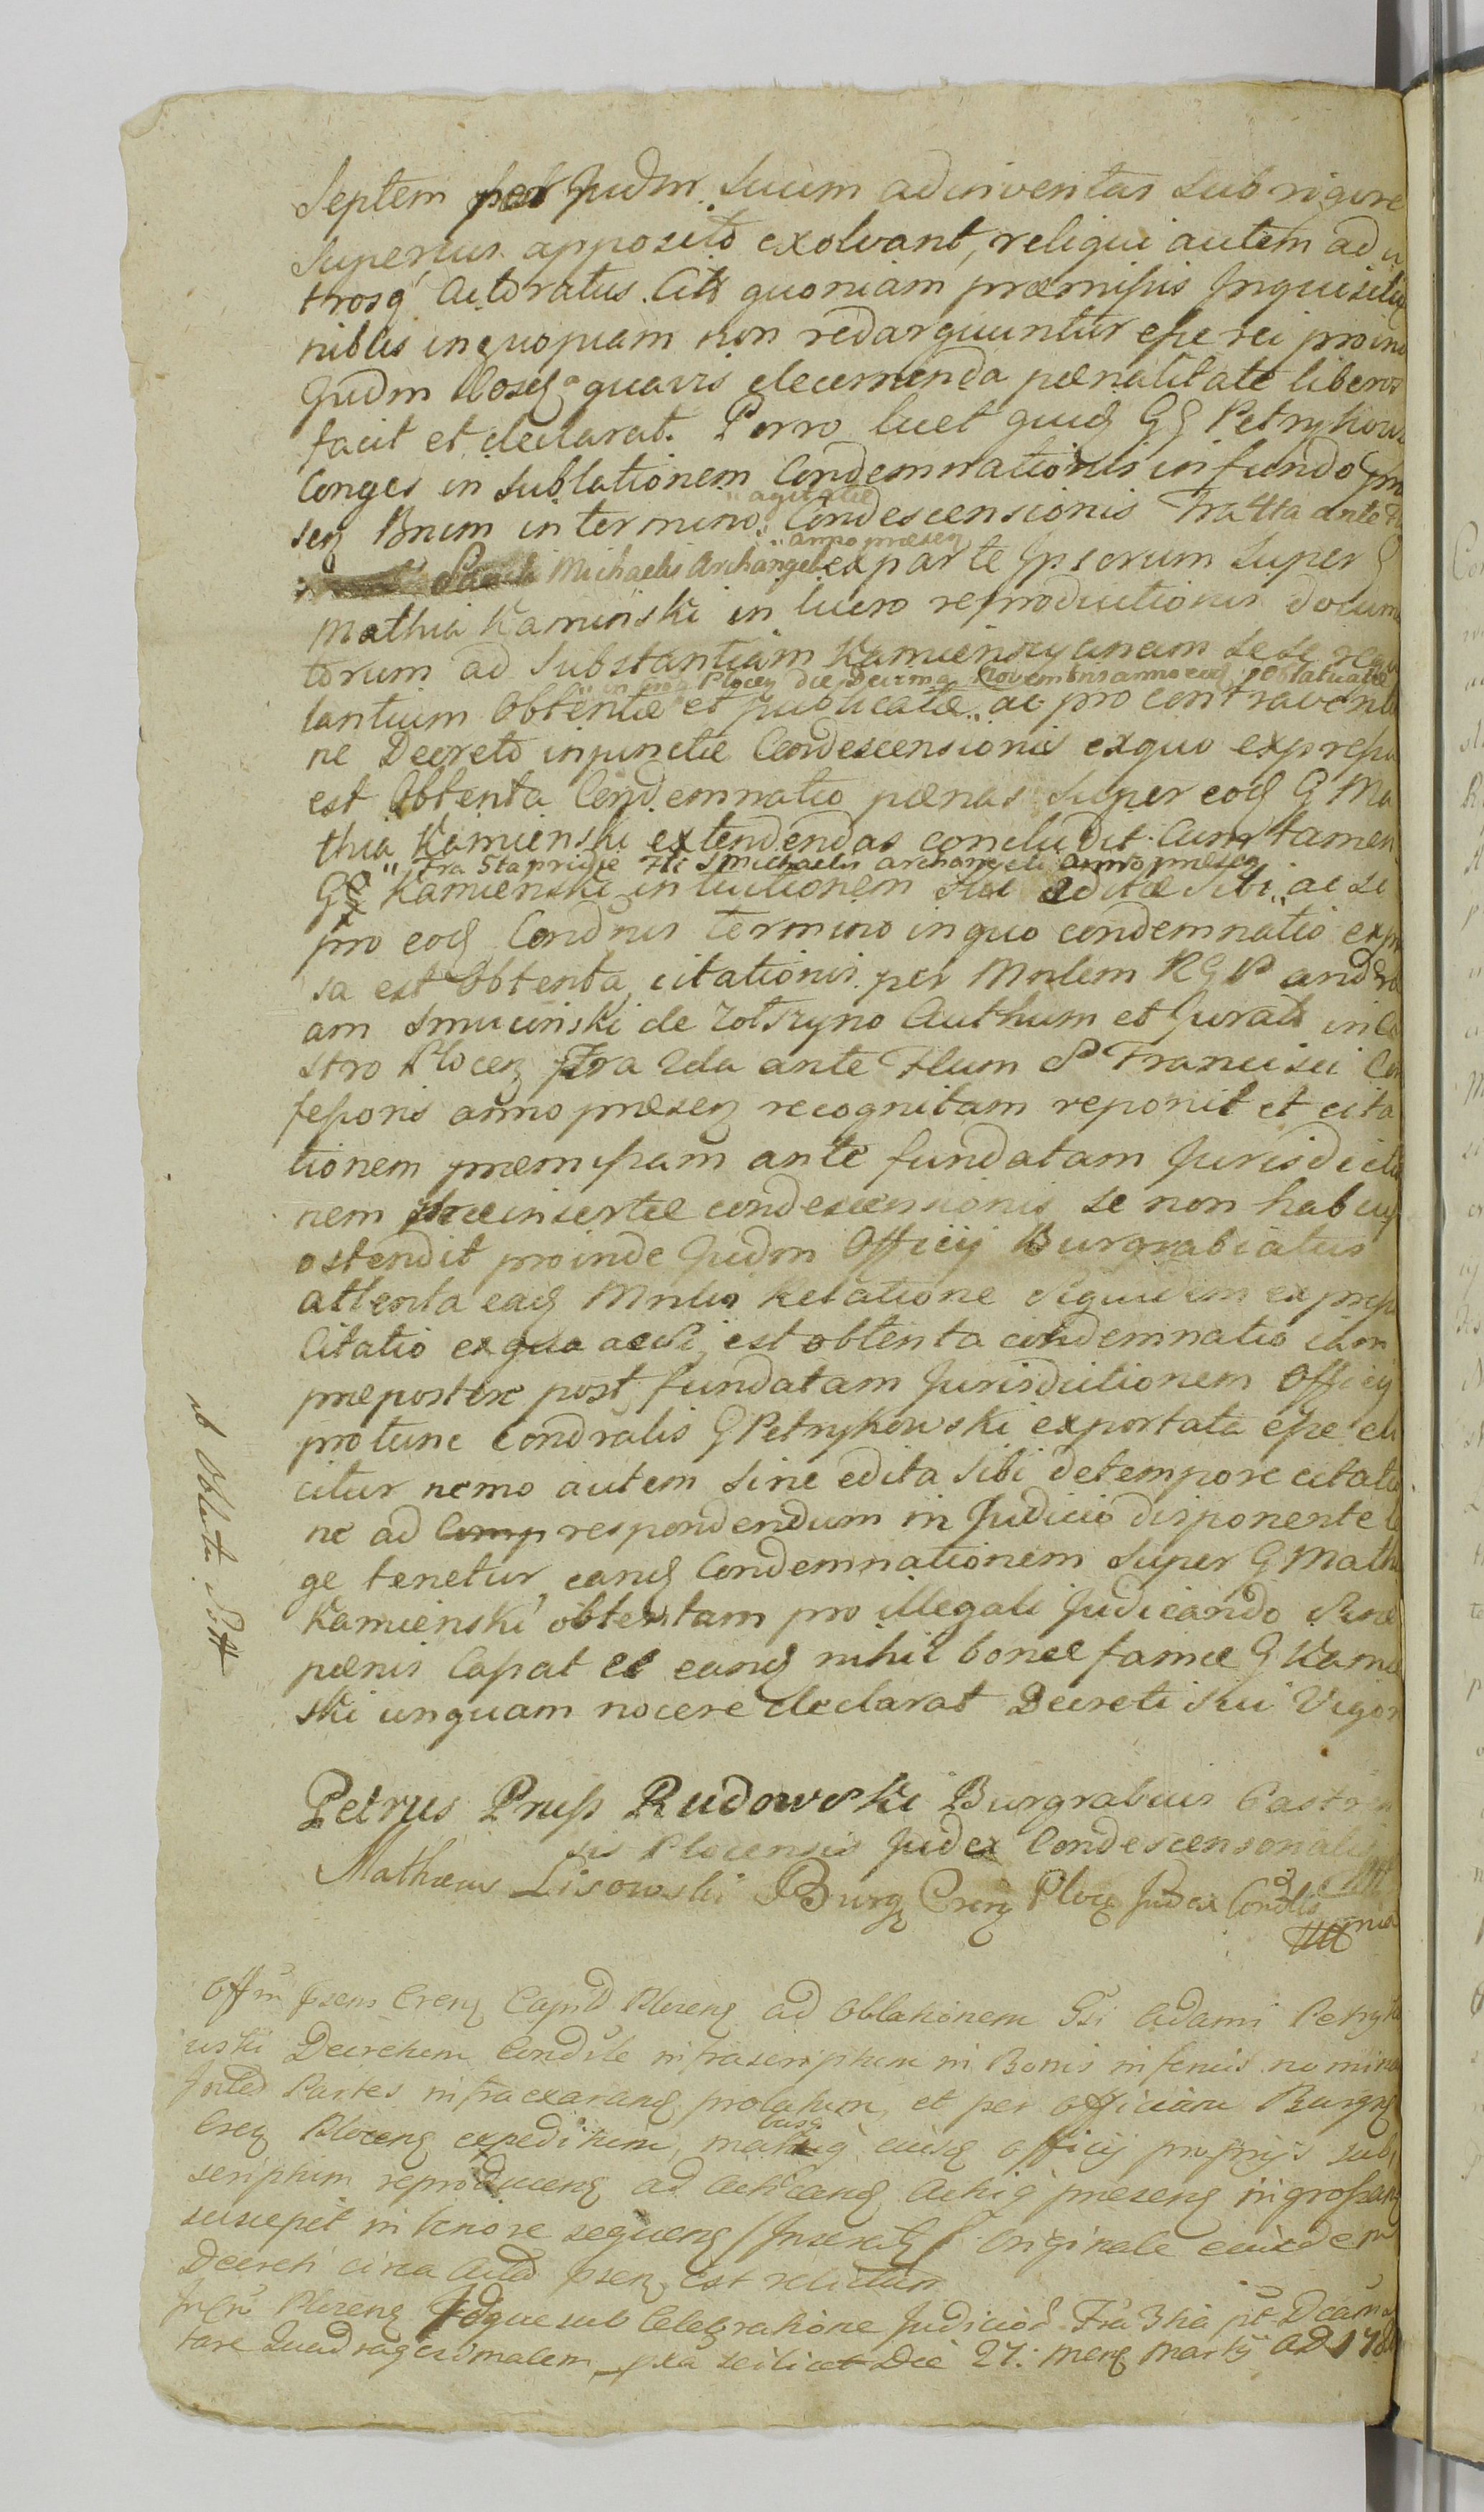 Septem per Judm Suum adinventas sub rigore
Superius apposito exolvant, reliqui autem ad u
trosq Actoratus Citt quoniam præmissis Inquisitio
nibus in quopiam non redarguuntur esse rei proind
Judm Eosdq quavis decernenda pænalitate liberos
facit et declarat. Porro licet quidq GG Petrykows
Conges in Sublationem Condemnationis in fundo præ
senq Bnrum in termino Condescensionis Fra 4ta ante F
"agitatæ
Sancti Michaelis Archangeli ex parte Ipsorum Super G
"anno præsenq
Mathia Kaminski in lucro reproductionis docum
torum ad Substantiam Kamienscyanam se se regu
lantium Obtentæ et publicatæ ac pro contraventio
"in Plocenq die Decima Novembris anno eodq oblatuatæ
ne Decreto injunctæ Condescensionis ex quo expressa
est Obtenta Condemnatio pænas Super eodq G Ma
thia Kamienski extendendas concludit. Cum tamen
G Kamienski in luitionem sui editæ Sibi ac si
"Fra Sta pridie Fti S Michaelis Archangeli anno præsenq
pro eodq Condnis termino in quo condemnatio expres
sa est Obtenta, citationis per Mnlem RGP andre
am Smucinski de Zotszyno Authum et Jurat in Ca
stro Plocenq Fra 2da ante Ftum S Francisci Con
fessoris anno præsenq recognitam reponit et cita
tionem præmissam ante fundatam Jurisdictio
nem præinsertæ condescensionis se non habuiss
ostendit proinde Judm Officij Burgrabiatus
attenta eadq Mnlis Relatione siquidem express
Citatio ex qua acsi est obtenta condemnatio iam
præpostere post fundatam Jurisdictionem Officij
protunc Condralis G Petrykowski exportata esse eli
citur nemo autem sine edita sibi de tempore citatio
ne ad Comp respondendum in Judicio disponente le
ge tenetur eandq Condemnationem Super G Mathia
Kamienski obtentam pro illegali Judicando Sine
pænis Cassat et eandq nihil bonæ famæ G Kamien
ski unquam nocere declarat Decreti sui Vigore
Petrus Pruss Rudowski Burgrabius Castren
sis Plocensis Judex Condescensonalis
Mathæus Lisowski Burgq Crenq Plocq Judex Condlis
ab Oblata Sott
Offm psens Crenq Capnld Plocenq ad Oblationem Gsi Adami Petryko
wski Decretum Condsle infrascriptum in Bonis inferius nomina
Inted Partes infra exarandq prolatum, et per officium Burgq
Crenq Plocenq expeditum, manibusq eiusq officij proprijs sub
scriptum reproducenq ad Acticandq Actisq præsenq ingrossandq
suscepit in tenore sequenq / Inserat / Originale eiusdem
Decreti circa Acta psenq est relictum
Plocenq Idque sub Celebratione Judiciord Fra 3tia pt Dcam
tare Quadragesimalem pxa scilicet Die 27. mensq Martij AD 17